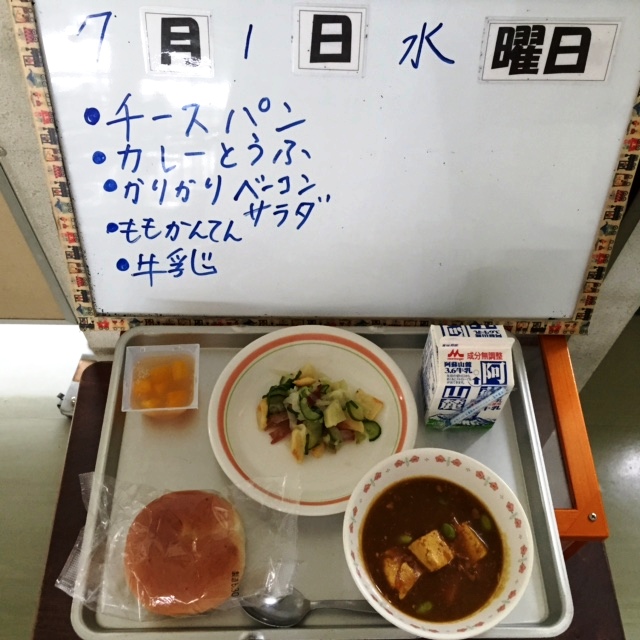 7 月 1 日 水 曜日
• チーズパン
• カレーとうふ
• かりかりベーコン
サラダ
• ももかんてん
• 牛乳
成分無調整
阿蘇山麓
3.6牛乳